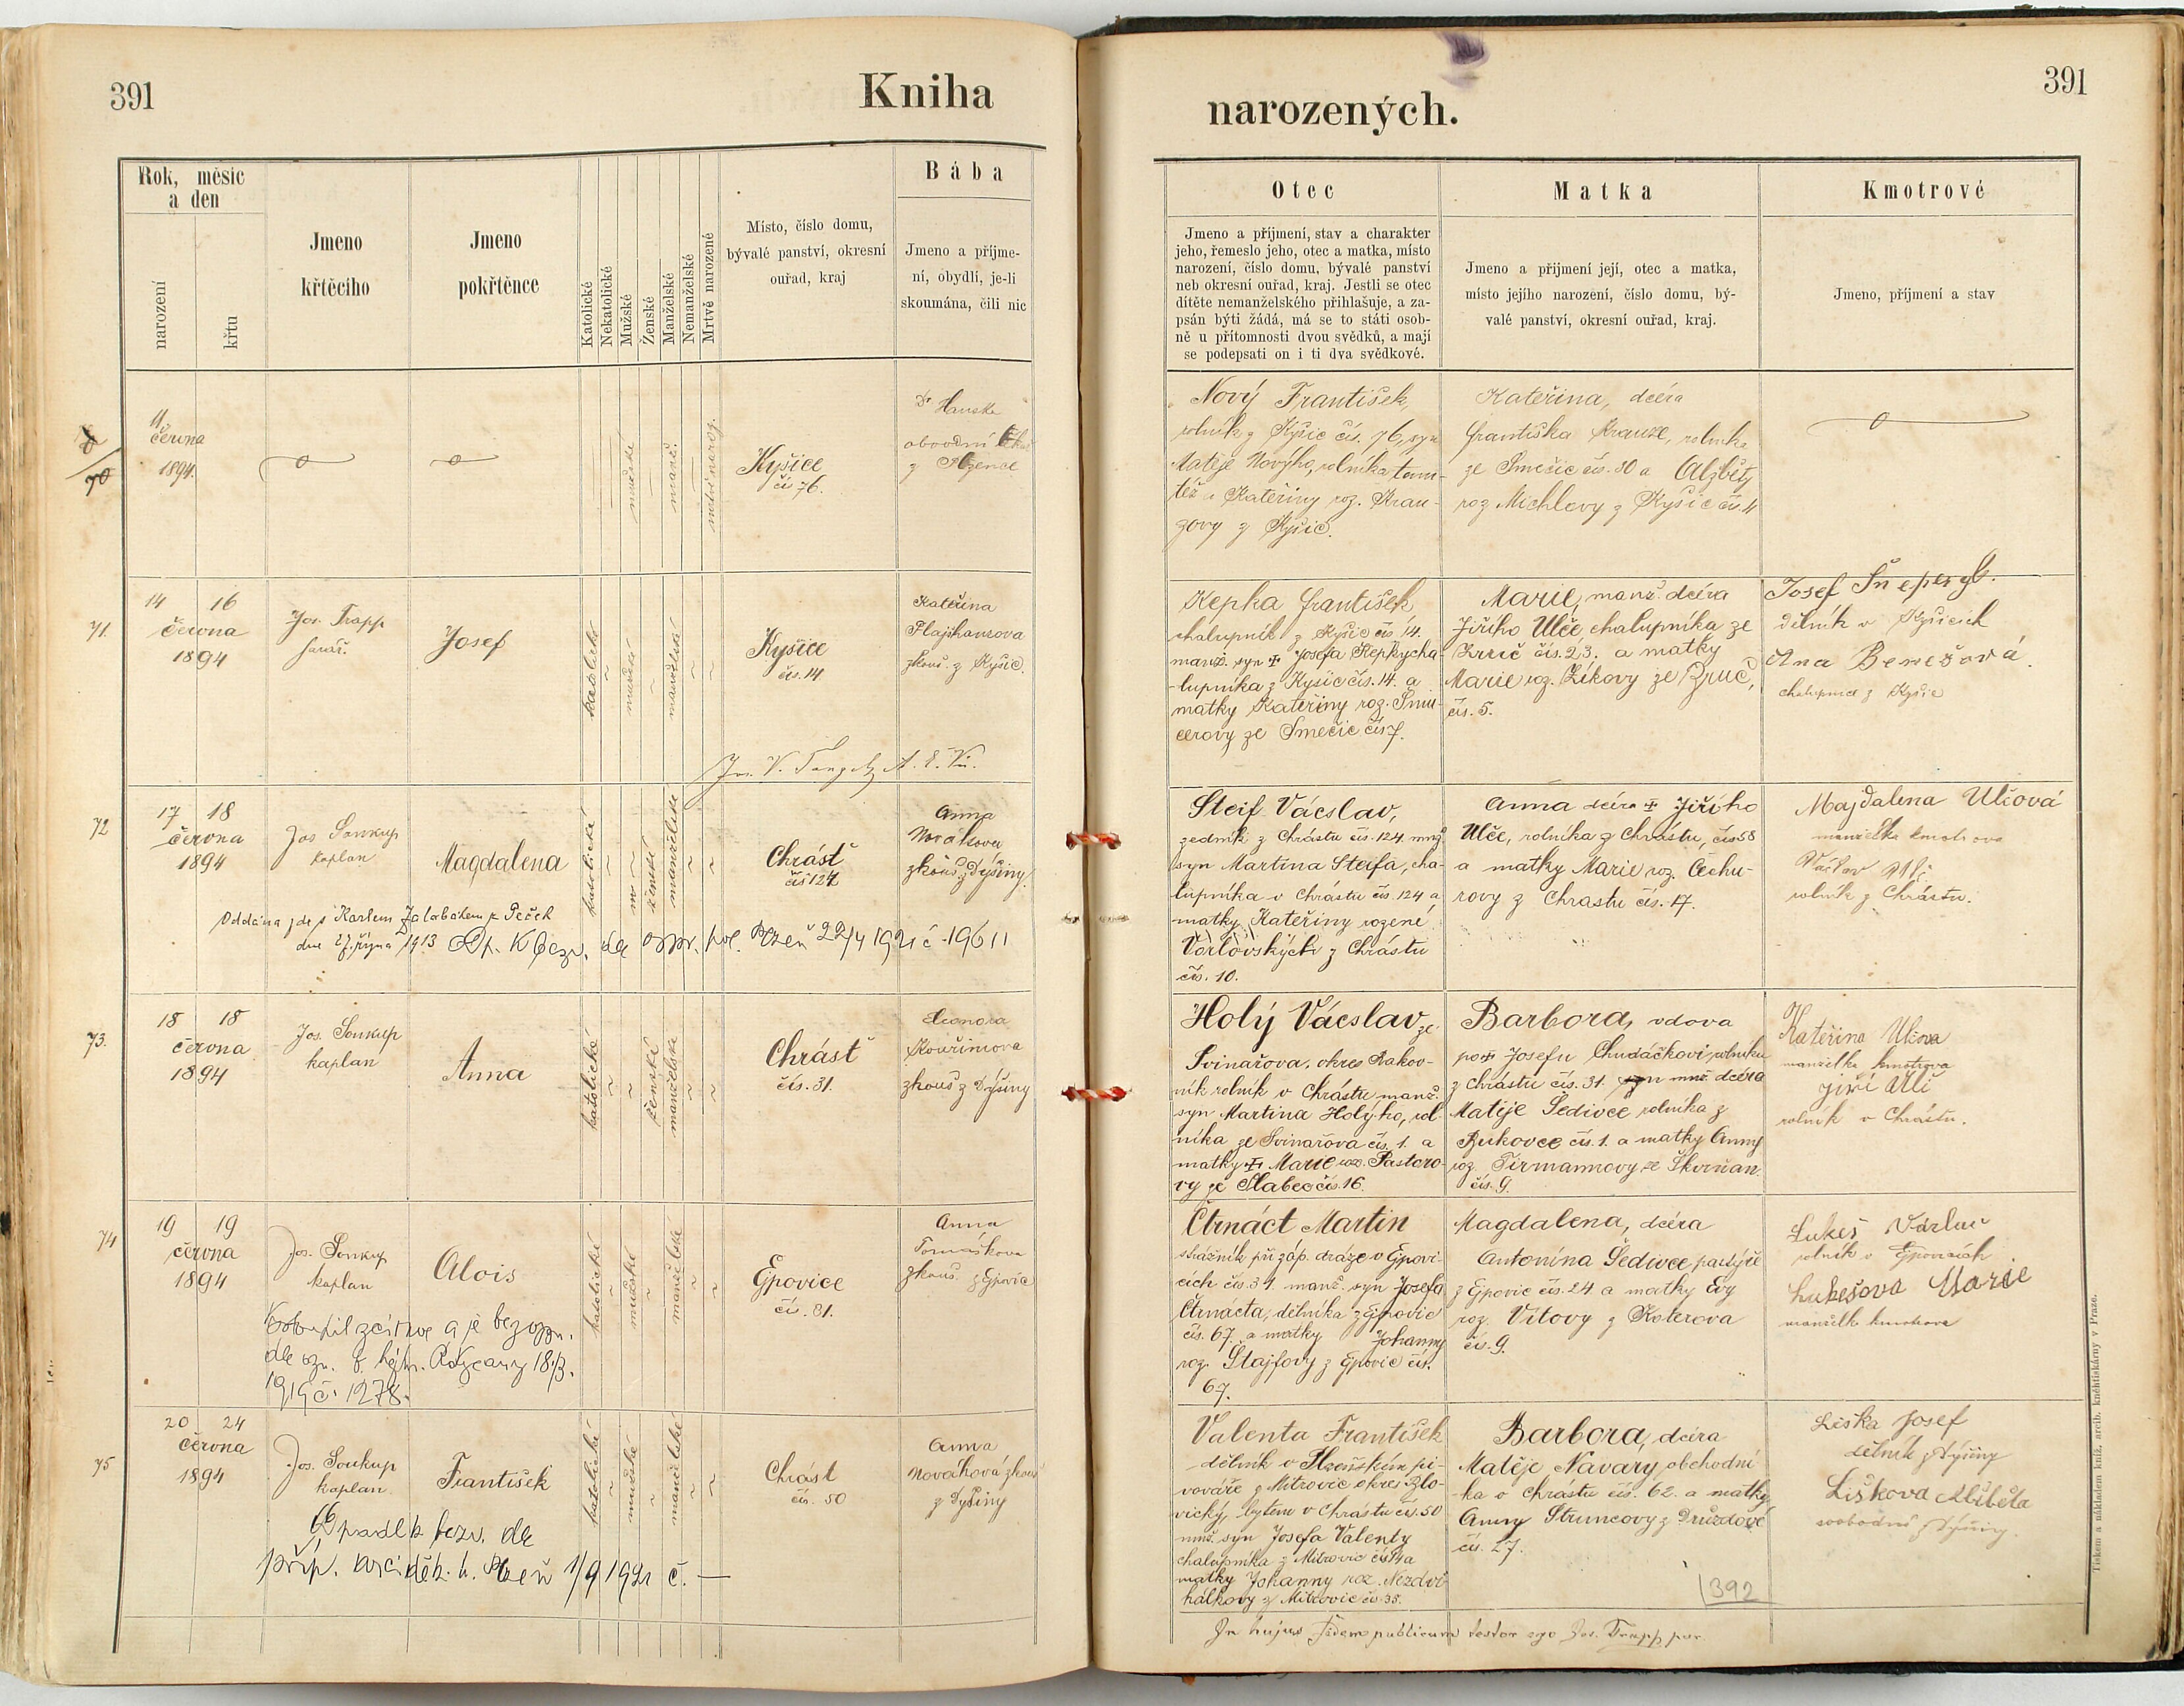 391
Kniha
narozených.
391
Rok, měsíc
a den
narození
křtu
Jmeno
křtěcího
Jmeno
pokřtěnce
Katolické
Nekatolické
Mužské
Ženské
Manželské
Nemanželské
Mrtvě narozené
Místo, číslo domu,
bývalé panství, okresní
ouřad, kraj
Bába
Jmeno a příjme-
ní, obydlí, je-li
skoumána, čili nic
Otec
Jmeno a příjmení, stav a charakter
jeho, řemeslo jeho, otec a matka, místo
narození, číslo domu, bývalé panství
neb okresní ouřad, kraj. Jestli se otec
dítěte nemanželského přihlašuje, a za-
psán býti žádá, má se to státi osob-
ně u přítomnosti dvou svědků, a mají
se podepsati on i ti dva svědkové.
Matka
Jmeno a příjmení její, otec a matka,
místo jejího narození, číslo domu, bý-
valé panství, okresní ouřad, kraj.
Kmotrové
Jmeno, příjmení a stav
70
11
června
1894.
mužské
manž.
mrtvě naroz.
Kyšice
čís 76.
Dr Hauske
obvodní
z Plzence
Nový František,
rolník z Kyšic čís. 76, syn
Matěje Nového, rolníka tam-
též a Kateřiny roz. Krau-
zovy z Kyšic.
Kateřina, dcéra
Františka Krause, rolníka
ze Smečic čís. 30 a Alžběty
roz Michlovy z Kyšic čís. 11
71.
14 16
června
1894
Jos. Trapp
farář.
Josef
katolické
mužské
manželské
Kyšice
čís. 14
Kateřina
Flajshansova
zkouš. z Kyšic.
Kepka František
chalupník z Kyšic čís 14.
manž. syn + Josefa Kepky cha-
-lupníka z Kyšic čís. 14. a
matky Kateřiny roz. Šmu-
cerovy ze Smečic čís 7.
Marie, manž. dcéra
Jiřího Ulče, chalupníka ze
čís. 23. a matky
Marie roz. Zíkovy ze Zruč,
čís. 5.
Josef
dělník v Kyšicích
Ana Benešová.
chalupnice z Kyšic
72
17 18
června
1894
Jos. Soukup
kaplan
Magdalena
katolické
ženské
manželské
Chrást
čís 124
Anna
Nováková
zkouš. z Dýšiny.
Oddána zde s Karlem
dne 27 října 1913
Plzeň 22/4 1921 č. 19611
Steif Václav,
zedník z Chrástu čís. 124. mnž.
syn Martina Steifa, cha-
lupníka v Chrástu čís. 124 a
matky Kateřiny rozené
z Chrástu
čís. 10.
Anna dcéra + Jiřího
Ulče, rolníka z Chrástu, čís 58
a matky Marie roz. Čechu-
rovy z Chrastu čís. 17.
Majdalena Ulčová
manželka kmotrova
Václav Ulč
rolník z Chrástu.
73.
18 18
června
1894
Jos. Soukup
kaplan
Anna
katolické
ženské
manželské
Chrást
čís. 31.
Eleonora
Kouřimova
zkouš z Dýšiny
Holý Václav ze
Svinařova, okres Rakov-
ník rolník v Chrástu manž.
syn Martina Holýho, rol-
níka ze Svinařova čís. 1. a
matky + Marie roz. Pastoro-
vy ze Slabec čís. 16.
Barbora, vdova
po + Josefu Chudáčkovi, rolníku
z Chrástu čís. 31. mnž. dcéra
Matěje Šedivce rolníka z
Bukovce čís. 1. a matky Anny
roz. Tirmannovy ze Škvrňan
čís. 9.
Kateřina Ulčova
manželka kmotrova
Jiří Ulč
rolník v Chrástu.
74
19 19
června
1894
Jos. Soukup
kaplan
Alois
katolické
mužské
manželské
Ejpovice
čís. 81.
Anna
Tomáškova
zkouš. z Ejpovic
a je bez vyzn.
dle ozn. 18/3.
1919 č. 1278.
Čtrnáct Martin
strážník při záp. dráze v Ejpovi-
cích čís. 31. manž. syn Josefa
Čtrnácta, dělníka z Ejpovic
čís. 67. a matky Johanny
roz. Štajfovy z Ejpovic čís.
67.
Magdalena, dcéra
Antonína Šedivce pastýře
z Ejpovic čís. 24 a matky Evy
roz. Vítovy z Koterova
čís. 9.
Lukeš Václav
rolník v Ejpovicích
Lukešova Marie
manželka kmotrova
75
20 24
června
1894
Jos. Soukup
kaplan
František
katolické
mužské
manželské
Chrást
čís. 50
Anna
Nováková zkouš
z Dýšiny
Odpadl k bezv. dle
příp. Plzeň 1/9 1921 č. —
Valenta František
dělník v Plzeňském pi-
vováře z Mitrovic okres Blo-
vický, bytem v Chrástu čís. 50
mnž. syn Josefa Valenty
chalupníka z Mitrovic čís 14 a
matky Johanny roz. Nezdvi-
hálkovy z Mitrovic čís 35.
Barbora, dcéra
Matěje Navary obchodní-
ka v Chrástu čís. 62. a matky
Anny Štruncovy z Druzdové
čís. 27.
Liška Josef
dělník z Dýšiny
Liškova Alžběta
svobodná z Dýšiny.
392
In hujus fidem publicam testor ego Jos. Trapp par.
Tiskem a nákladem kníž. arcib. knihtiskárny v Praze.